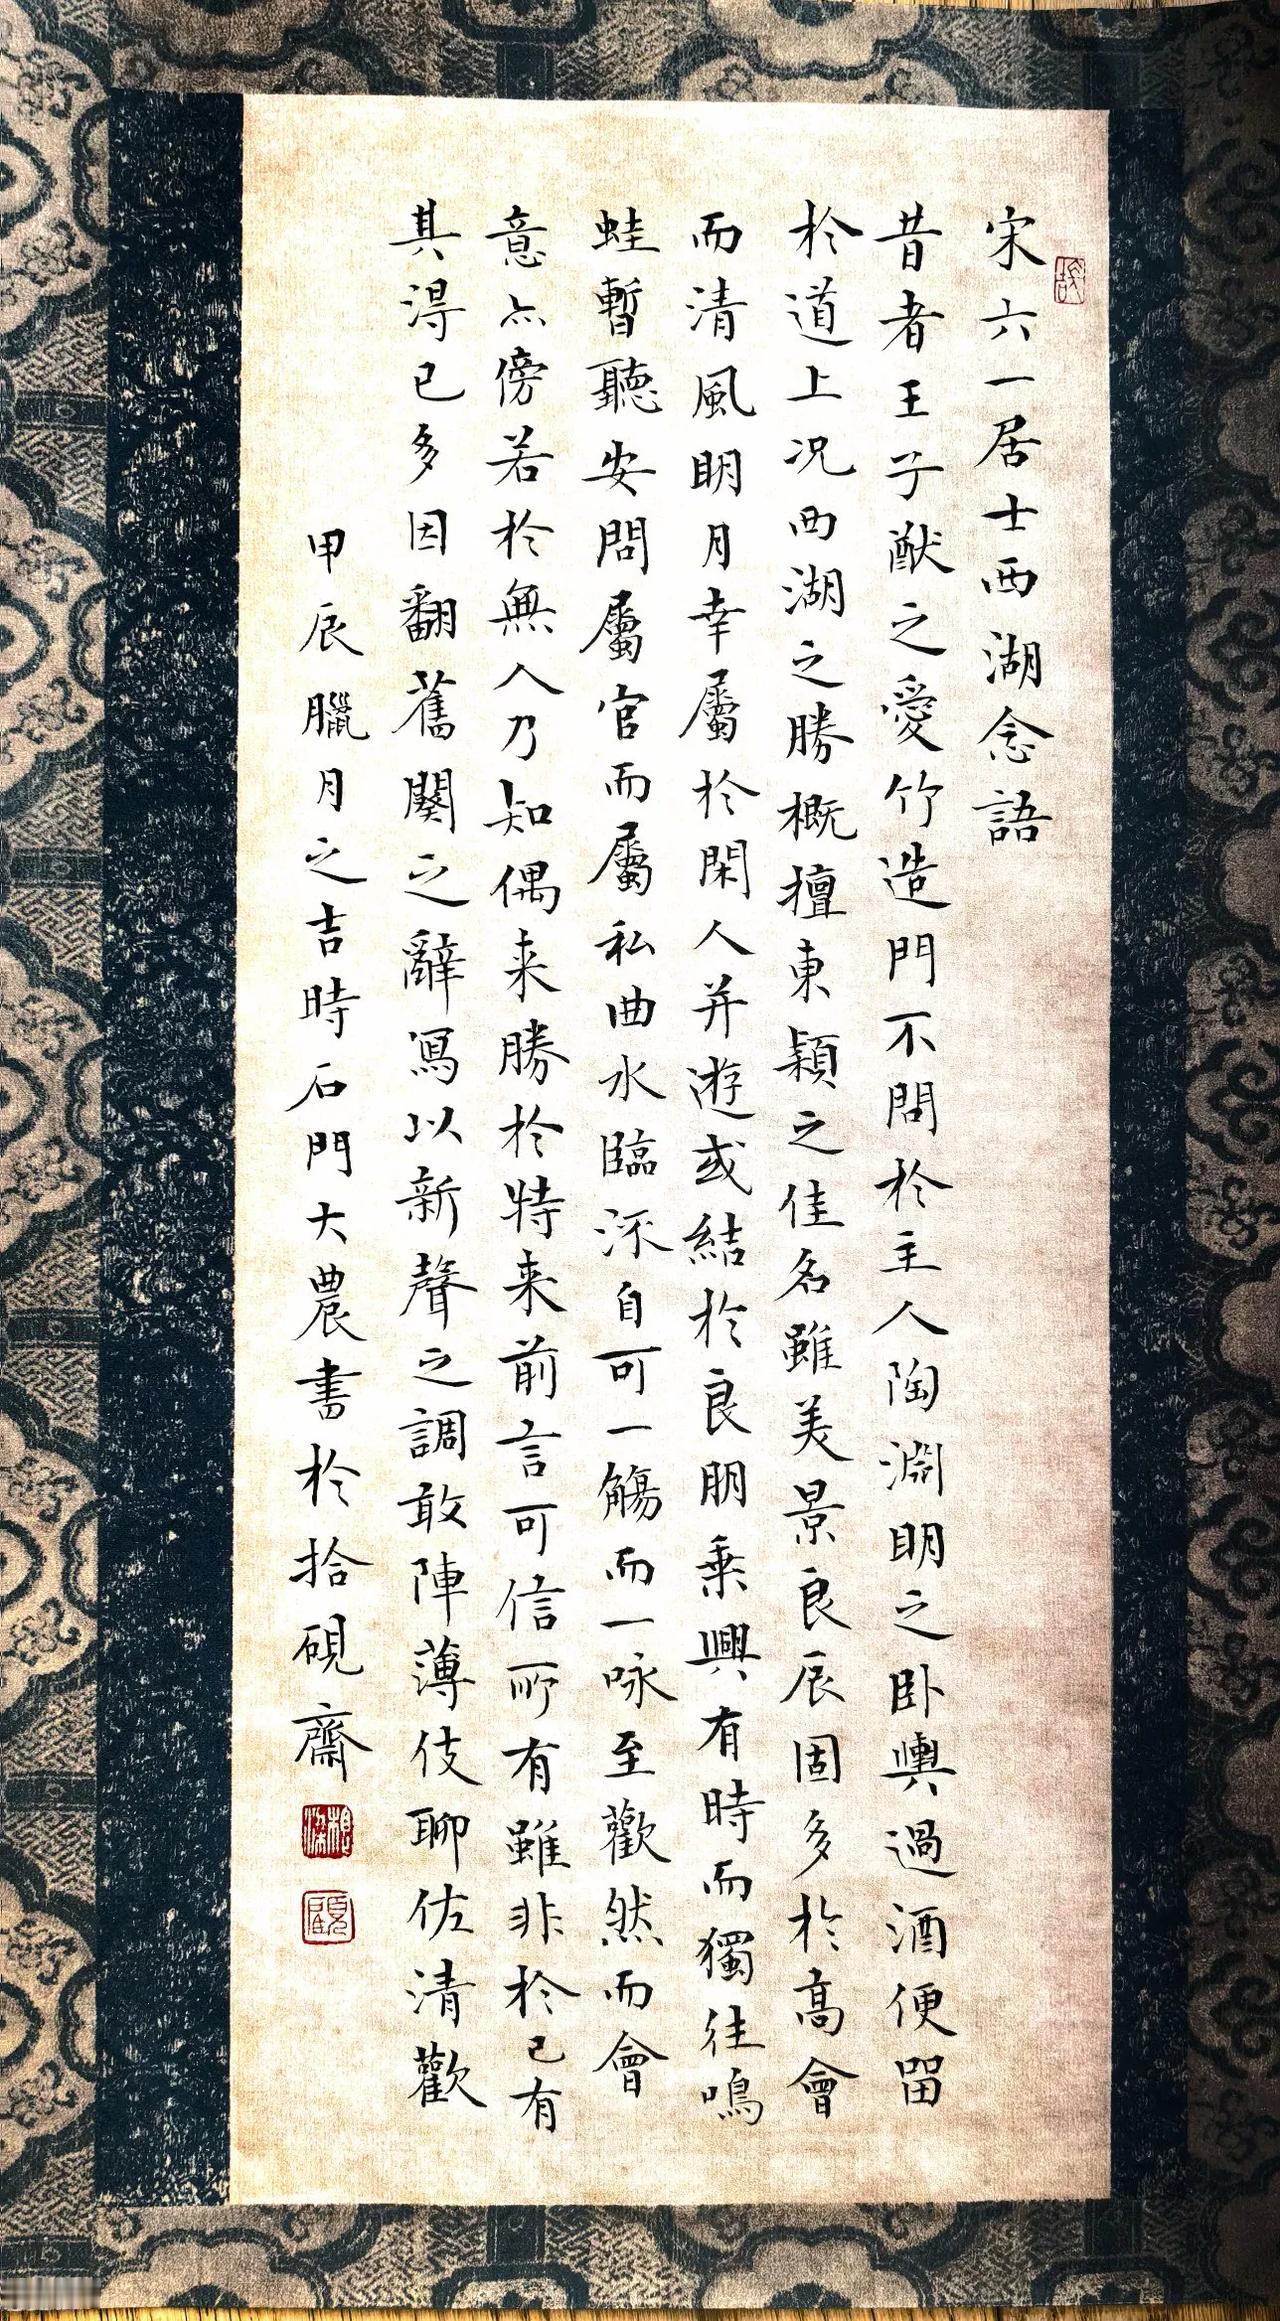 宋六一居士西湖念語
昔者王子猷之愛竹造門不問於主人陶淵明之卧輿過酒便留
於道上况西湖之勝概擅東穎之佳名雖美景良辰固多於高會
而清風明月幸屬於閑人并遊或結於良朋乘興有時而獨往鳴
蛙暫聽安問屬官而屬私曲水臨流自可一觴而一咏至歡然而會
意亦傍若於無人乃知偶来勝於特来前言可信所有雖非於己有
其得已多因翻舊闋之辭寫以新聲之調敢陣薄伎聊佐清歡
甲辰臘月之吉時石門大農書於拾硯齋